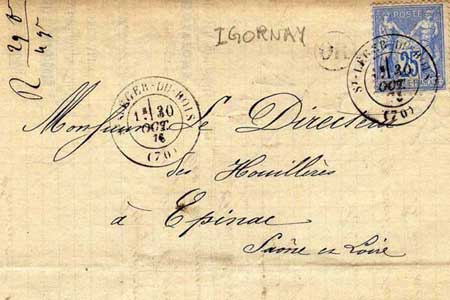 IGORNAY
OR
POSTE
25
ST LEGER-DU-BOIS
30
OCT.
76
(70)
LEGER-DU-BOIS
1E 30
OCT.
76
(70)
R 29 8
Monsieur Le Directeur
des Houillères
à Epinac
Saône et Loire